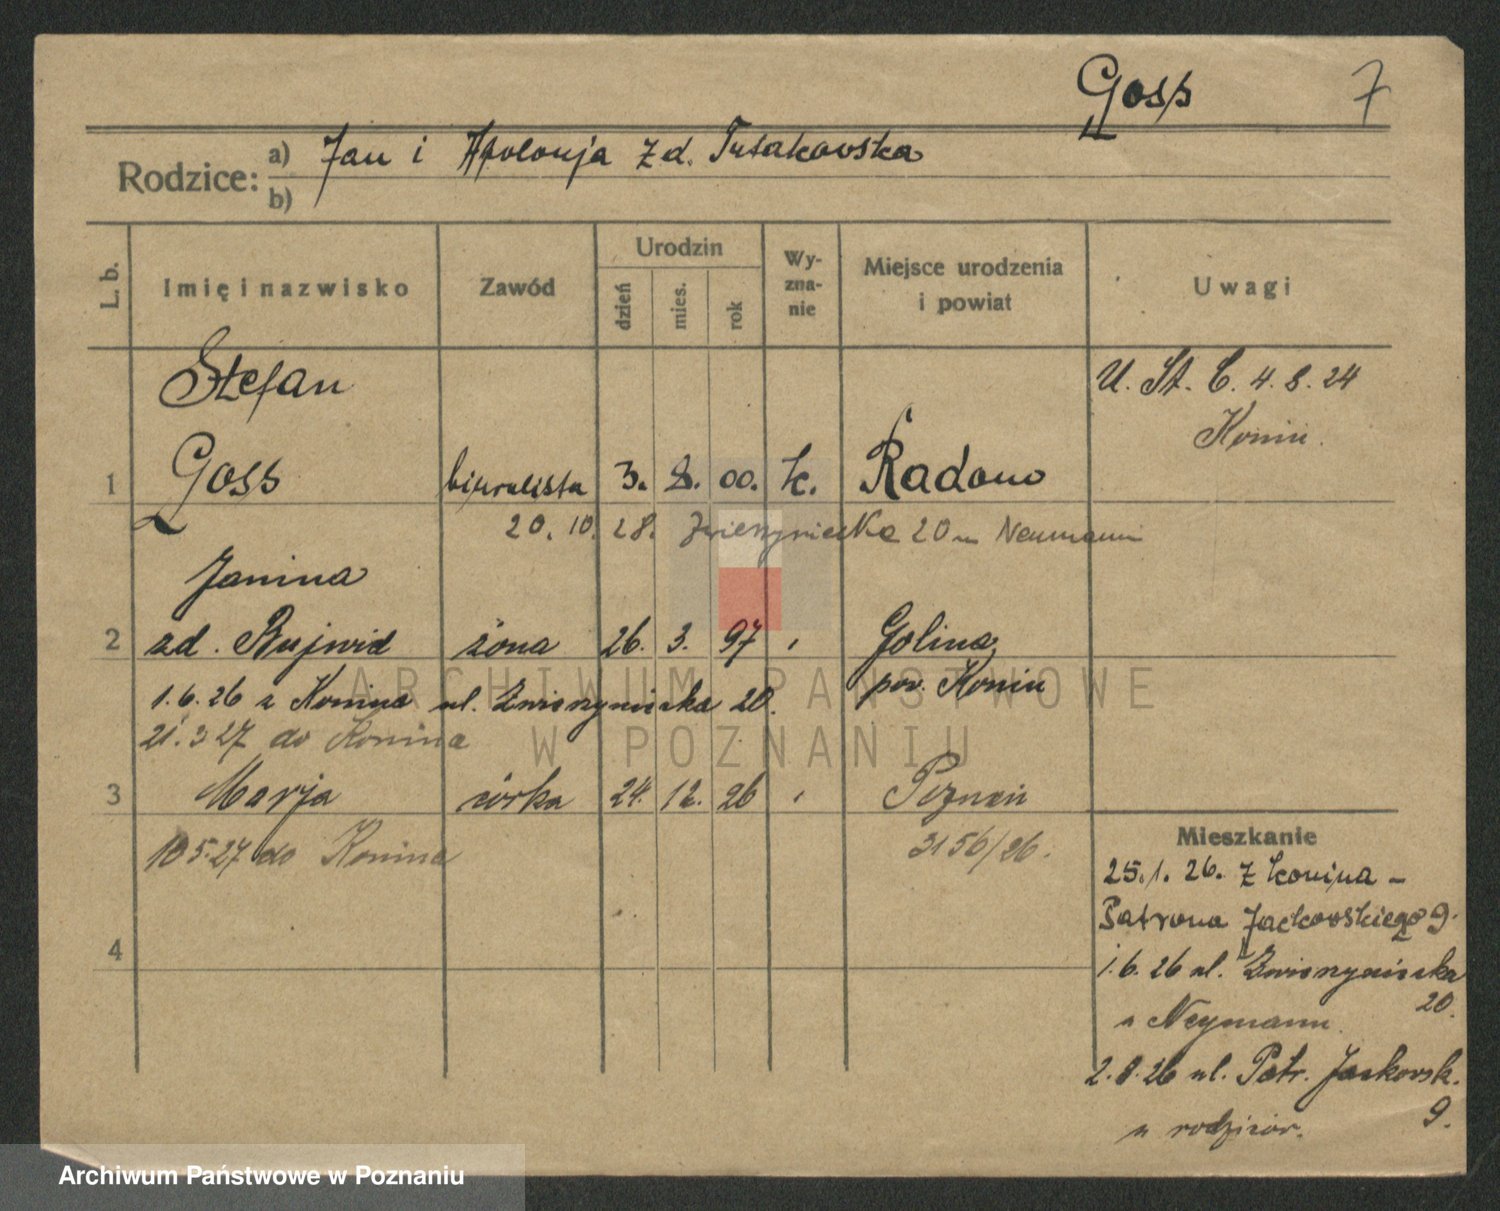 Goss 7
Rodzice: a) Jan i Apolonja zd. Tusakowska
b)
L. b. Imię i nazwisko Zawód Urodzin dzień mies. rok Wyznanie Miejsce urodzenia i powiat Uwagi
Stefan U. St. C. 4. 8. 24
Konin.
1 Goss biuralista 3. 8. 00. k. Radowo
20. 10. 28. Zwierzyniecka 20 u Neumann
Janina
2 zd. Bujwid żona 26. 3. 97 Golina,
pow. Konin
1.6.26 z Konina ul. Zwierzyniecka 20.
21.3 27 do Konina
3 Marja córka 24. 12. 26 Poznań
10 5.27 do Konina 3156/26.
4
Mieszkanie
25.1. 26. z Konina –
Patrona Jackowskiego 9.
1.6. 26 ul. Zwierzyniecka
20.
u Neymann
2.8.26 ul. Patr. Jackowsk.
9.
u rodziców.
ARCHIWUM PAŃSTWOWE
W POZNANIU
Archiwum Państwowe w Poznaniu